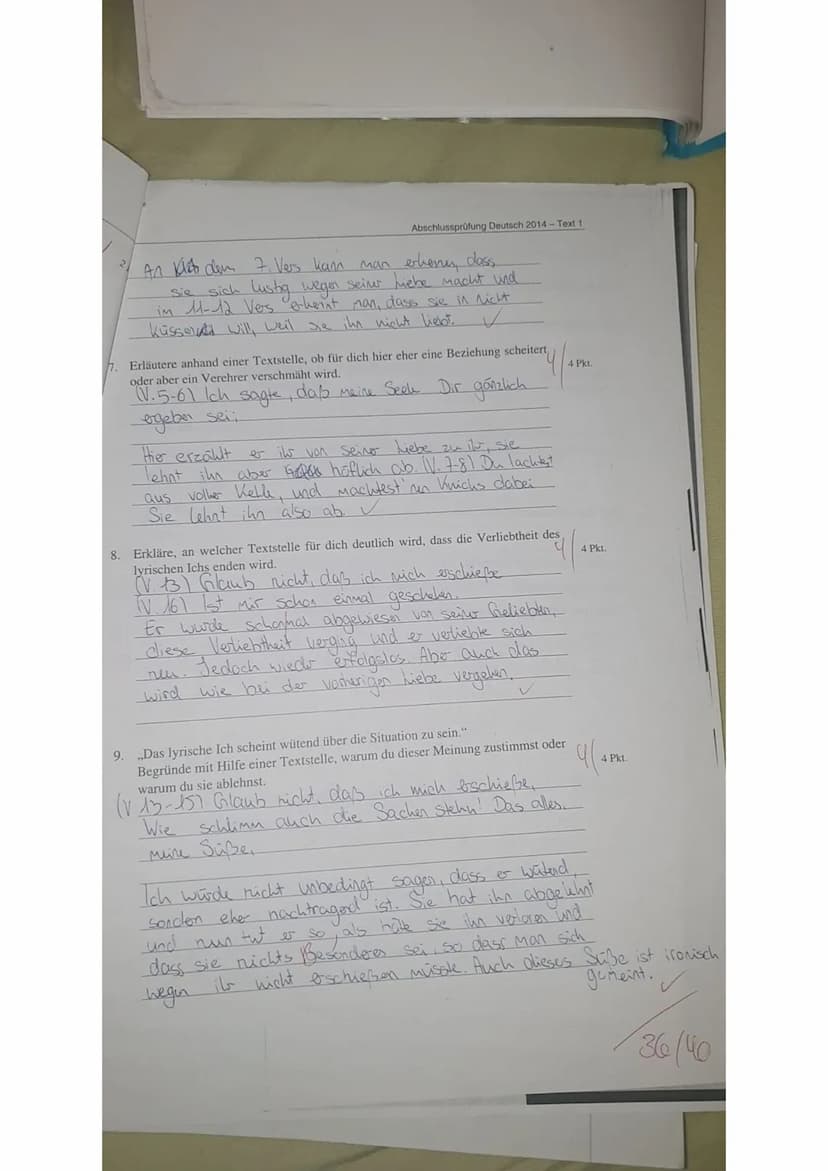 Abschlussprüfung Deutsch 2014 – Text 1
An dem 7. Vers kann man erkennen, dass
sie sich lustig wegen seiner Liebe macht und
im 11-12 Vers erkennt man, dass sie in nicht
küssen will, weil sie ihn nicht liebt. ✓
7. Erläutere anhand einer Textstelle, ob für dich hier eher eine Beziehung scheitert 4/4 Pkt.
oder aber ein Verehrer verschmäht wird.
(V. 5-6) Ich sagte, daß meine Seele Dir gänzlich
ergeben sei;
Hier erzählt er ihr von seiner Liebe zu ihr, sie
lehnt ihn aber höflich ab (V. 7-8) Du lachtest
aus voller Kehle, und machtest 'nen Knicks dabei
Sie lehnt ihn also ab ✓
8. Erkläre, an welcher Textstelle für dich deutlich wird, dass die Verliebtheit des 4/4 Pkt.
lyrischen Ichs enden wird.
(V. 13) Glaub nicht, daß ich mich erschieße
(V. 16) Ist mir schon einmal geschehen.
Er wurde schonmal abgewiesen von seiner Geliebten,
diese Verliebtheit verging und er verliebte sich
neu. Jedoch wieder erfolgslos. Aber auch das
wird wie bei der vorherigen Liebe vergehen. ✓
9. „Das lyrische Ich scheint wütend über die Situation zu sein.“
Begründe mit Hilfe einer Textstelle, warum du dieser Meinung zustimmst oder 4/4 Pkt.
warum du sie ablehnst.
(V 13-15) Glaub nicht, daß ich mich erschieße,
Wie schlimm auch die Sachen stehn! Das alles,
meine Süße,
Ich würde nicht unbedingt sagen, dass er wütend,
sonden eher nachtragend ist. Sie hat ihn abgelehnt
und nun tut er so, als hätte sie ihn verloren und
dass sie nichts Besonderes sei, so dass man sich
wegen ihr nicht erschießen müsste. Auch dieses Süße ist ironisch
gemeint. ✓
36/40